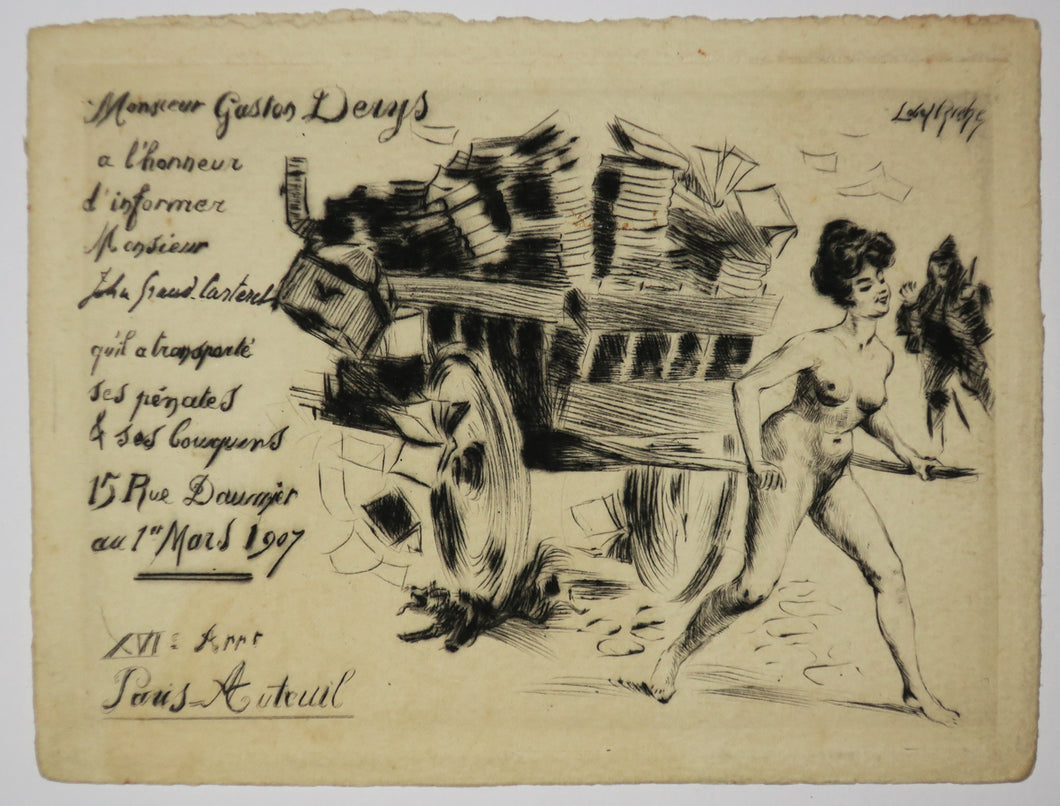 Monsieur Gaston Derys
a l'honneur
d'informer
Monsieur
John Grand-Carteret
qu'il a transporté
ses pénates
& ses bouquins
15 Rue Daumier
au 1er Mars 1907
XVIe Arrt
Paris-Auteuil
Lobel Riche